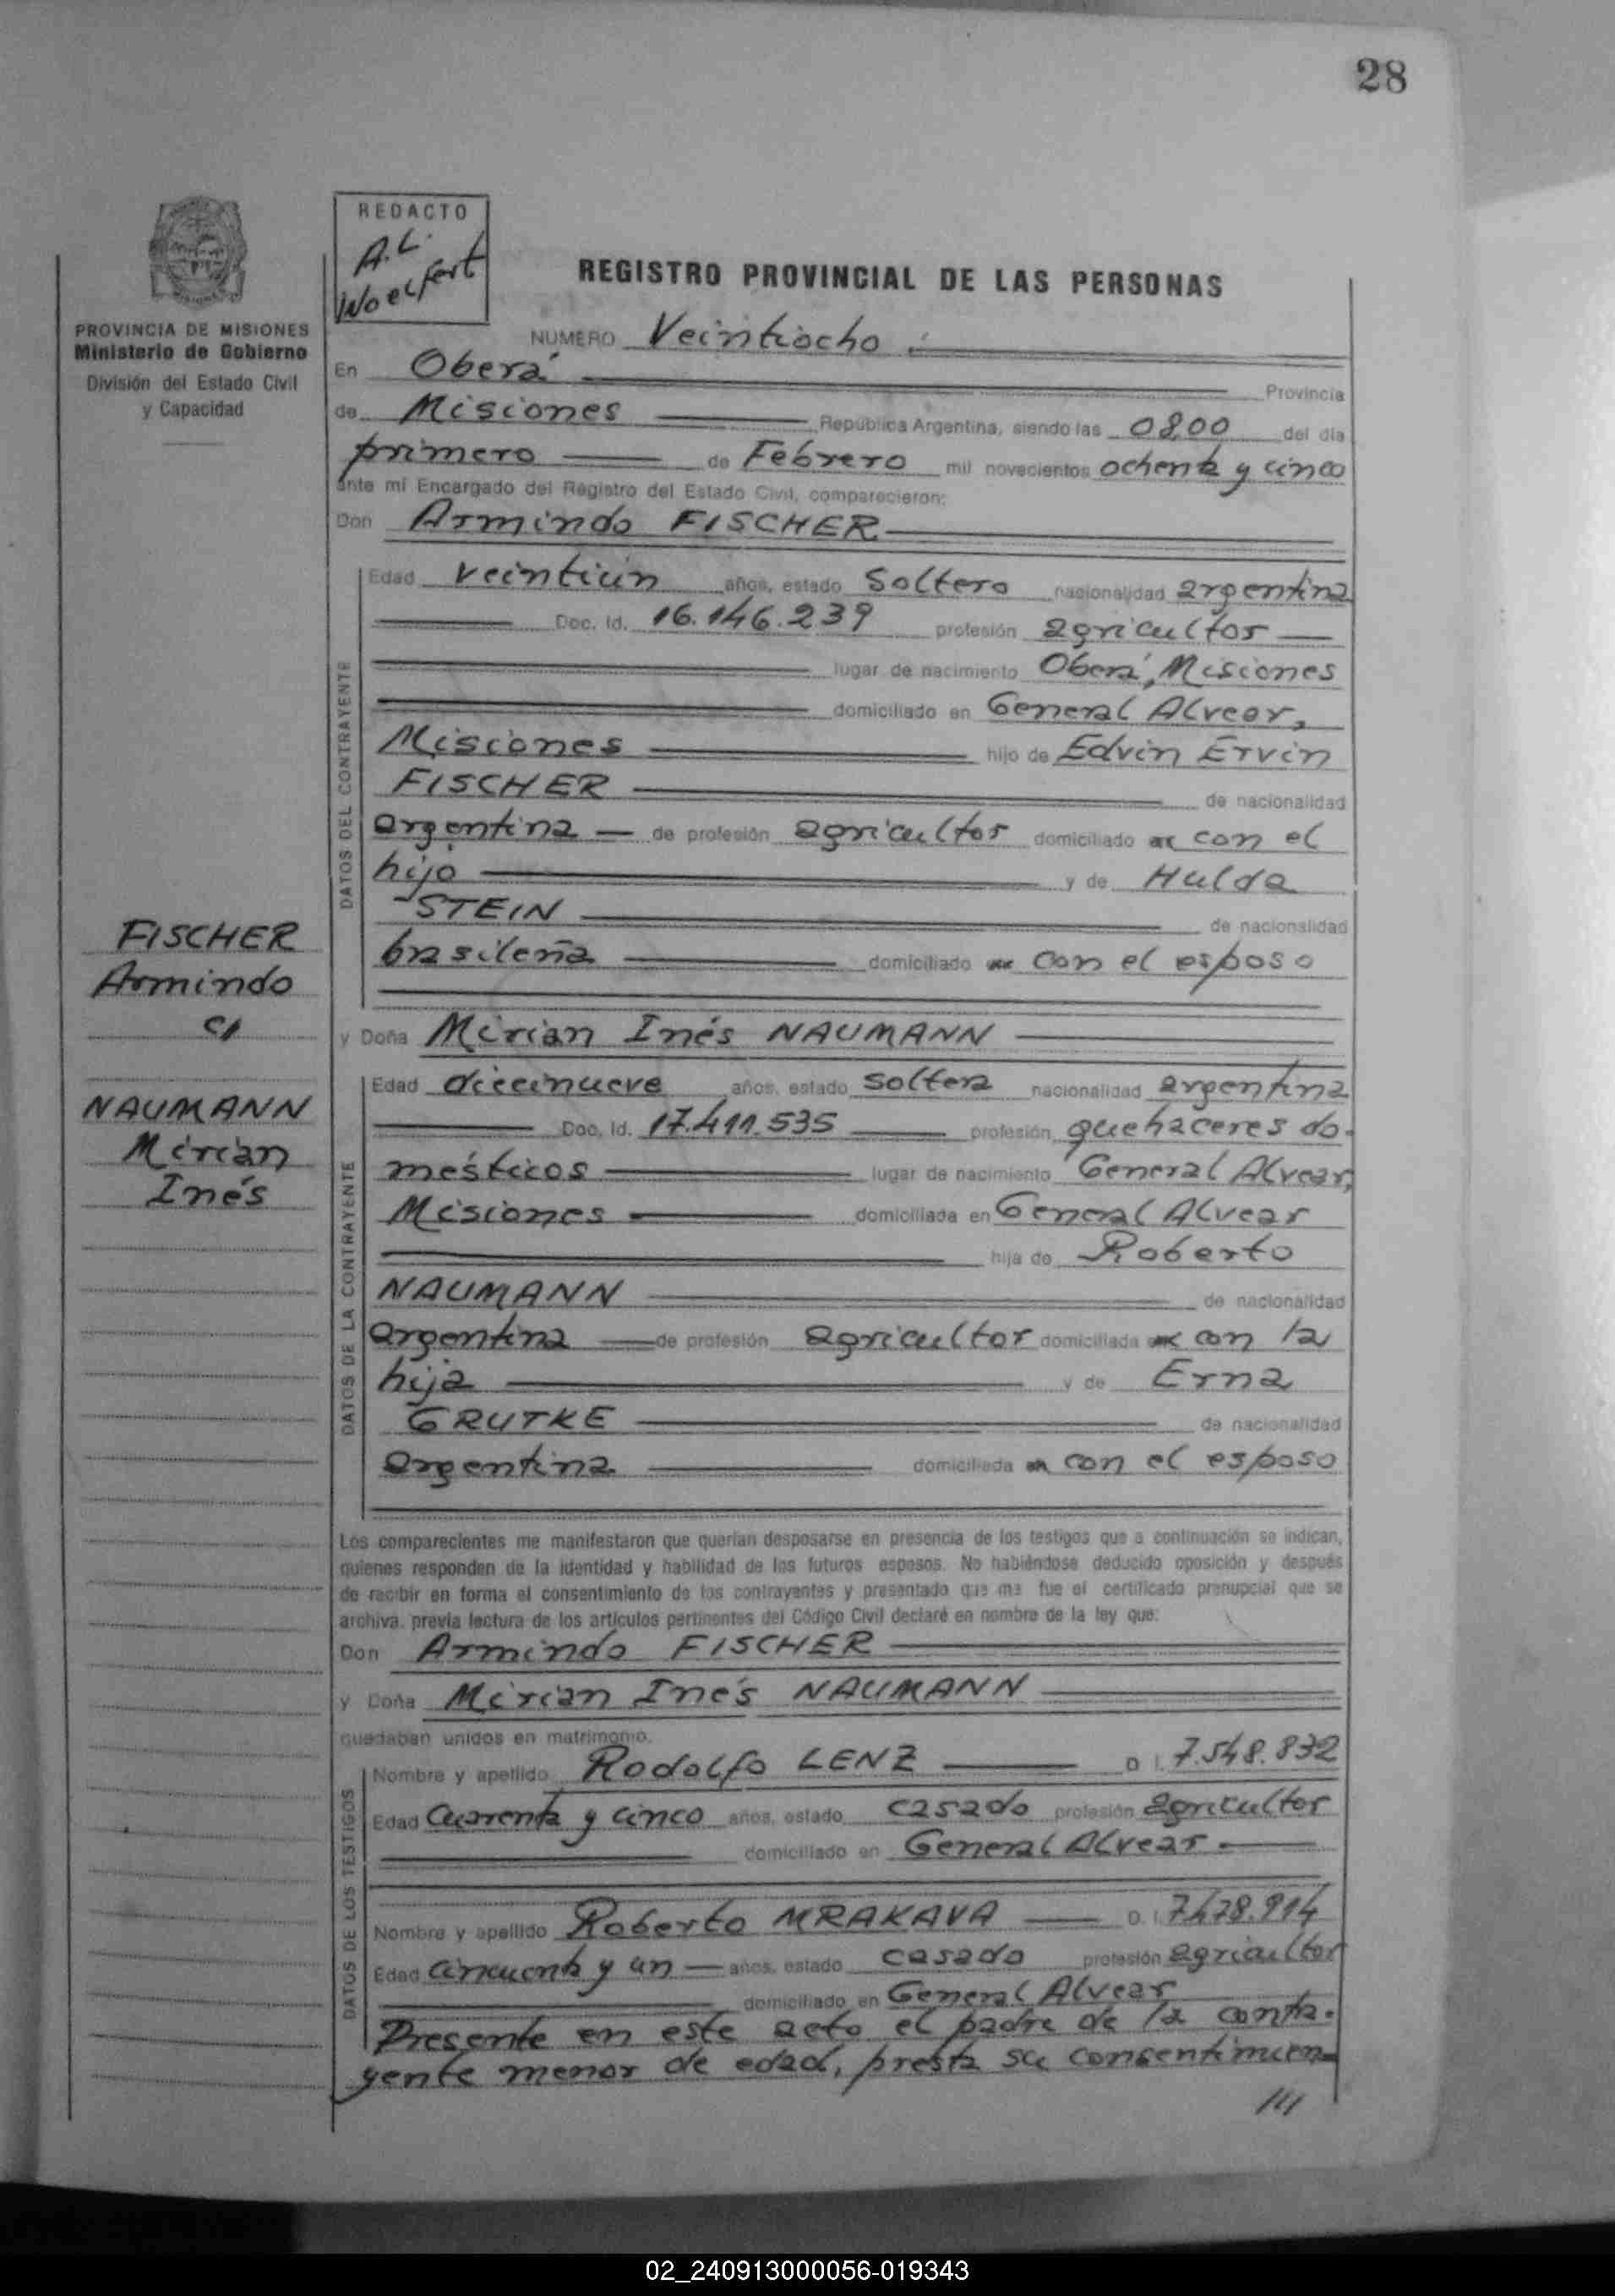 28
REDACTO
A.L.
Woelfert
REGISTRO PROVINCIAL DE LAS PERSONAS
PROVINCIA DE MISIONES
Ministerio de Gobierno
División del Estado Civil
y Capacidad
NUMERO Veintiocho
En Oberá Provincia
de Misiones República Argentina, siendo las 0800 del día
primero de Febrero mil novecientos ochenta y cinco
ante mí Encargado del Registro del Estado Civil, comparecieron:
Don Armindo FISCHER
DATOS DEL CONTRAYENTE
Edad veintiún años, estado soltero nacionalidad argentina
Doc. Id. 16.146.239 profesión agricultor
lugar de nacimiento Oberá, Misiones
domiciliado en General Alvear,
Misiones hijo de Edvin Ervin
FISCHER de nacionalidad
argentina de profesión agricultor domiciliado con el
hijo y de Hulda
STEIN de nacionalidad
brasileña domiciliado con el esposo
FISCHER
Armindo
c/
NAUMANN
Mirian
Inés
y Doña Mirian Inés NAUMANN
DATOS DE LA CONTRAYENTE
Edad diecinueve años, estado soltera nacionalidad argentina
Doc. Id. 17.411.535 profesión quehaceres do-
mésticos lugar de nacimiento General Alvear,
Misiones domiciliada en General Alvear
hija de Roberto
NAUMANN de nacionalidad
argentina de profesión agricultor domiciliada con la
hija y de Erna
GRUTKE de nacionalidad
argentina domiciliada con el esposo
Los comparecientes me manifestaron que querían desposarse en presencia de los testigos que a continuación se indican,
quienes responden de la identidad y habilidad de los futuros esposos. No habiéndose deducido oposición y después
de recibir en forma el consentimiento de los contrayentes y presentado que me fue el certificado prenupcial que se
archiva, previa lectura de los artículos pertinentes del Código Civil declaré en nombre de la ley que:
Don Armindo FISCHER
y Doña Mirian Inés NAUMANN
quedaban unidos en matrimonio.
DATOS DE LOS TESTIGOS
Nombre y apellido Rodolfo LENZ D.I. 7.548.832
Edad Cuarenta y cinco años, estado casado profesión agricultor
domiciliado en General Alvear.
Nombre y apellido Roberto MRAKAVA D.I. 7.478.914
Edad cincuenta y un años, estado casado profesión agricultor
domiciliado en General Alvear
Presente en este acto el padre de la contra-
yente menor de edad, presta su consentimien-
///
02_240913000056-019343